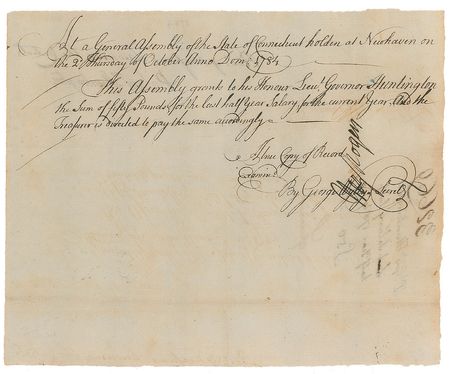 At a General Assembly of the State of Connecticut holden at Newhaven on
the 2d. Thursday of October Anno Dom: 1784
This Assembly grants to his Honour Lieut. Governor Huntington
the Sum of fifty Pounds for the last half Year Salary for the current Year, And the
Treasurer is directed to pay the same accordingly
A true Copy of Record
Examind.
By George Wyllys Secret.